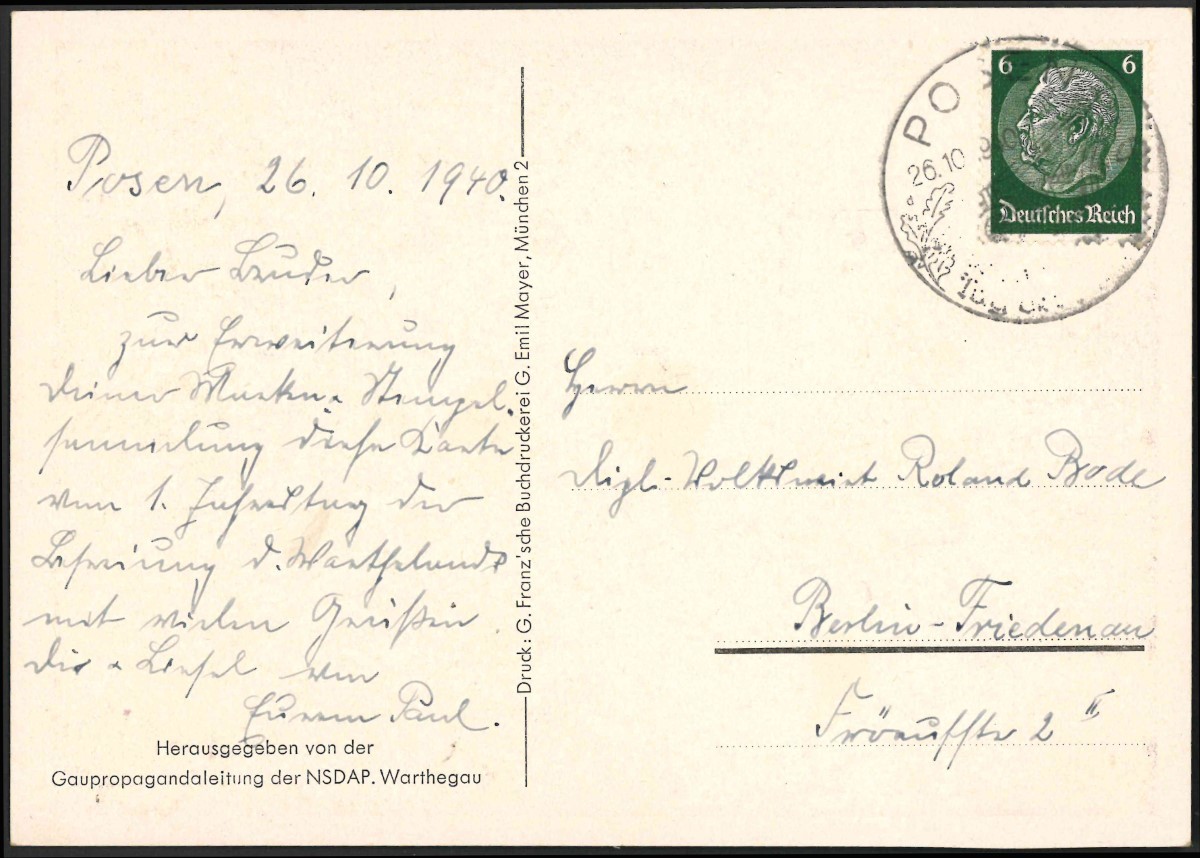 Posen, 26. 10. 1940.
Lieber Bruder,
zur Erweiterung
Deiner Marken- Stempel-
sammlung diese Karte
vom 1. Jahrestag der
Befreiung d. Warthelands
mit vielen Grüßen
Dir + Liesel von
Eurem Paul.
Herausgegeben von der
Gaupropagandaleitung der NSDAP. Warthegau
Druck: G. Franz'sche Buchdruckerei G. Emil Mayer, München 2
6 6
Deutsches Reich
POSEN
26.10
Herrn
Dipl.-Volkswirt Roland Bode
Berlin-Friedenau
2 II